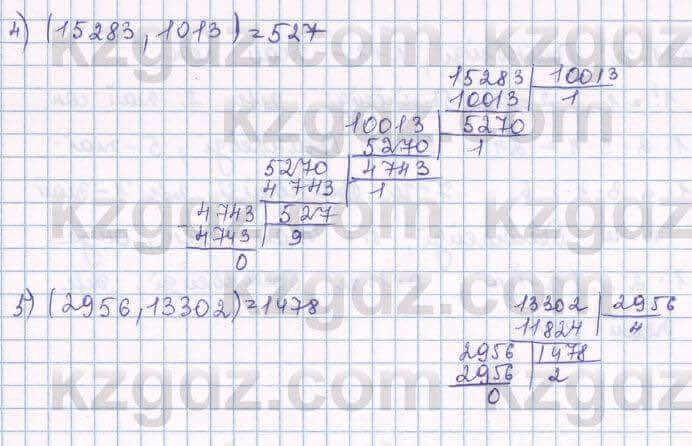 4) (15283, 1013) = 527
15283 | 10013
10013 | 1
10013 | 5270
5270 | 1
5270 | 4743
4743 | 1
- 4743 | 527
4743 | 9
0
5) (2956, 13302) = 1478
13302 | 2956
11824 | 4
2956 | 1478
2956 | 2
0
kzgdz.com